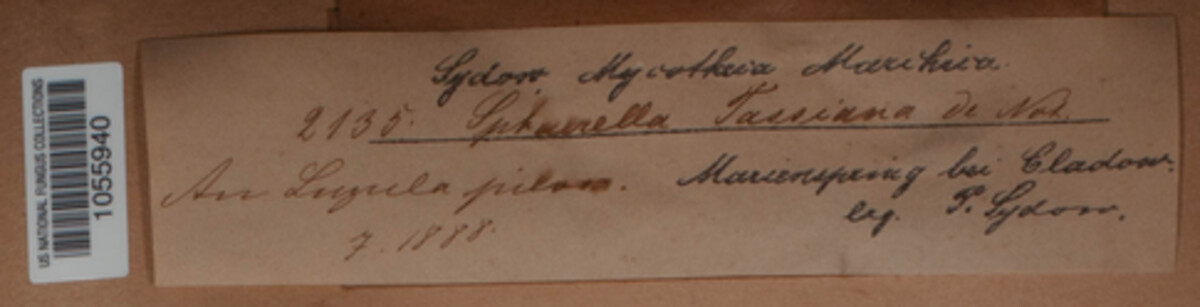 US NATIONAL FUNGUS COLLECTIONS
1055940
Sydow, Mycotheca Marchica.
2135. Sphaerella Tassiana de Not.
An Luzula pilosa. Marienspring bei Cladow.
7. 1888. leg. P. Sydow.